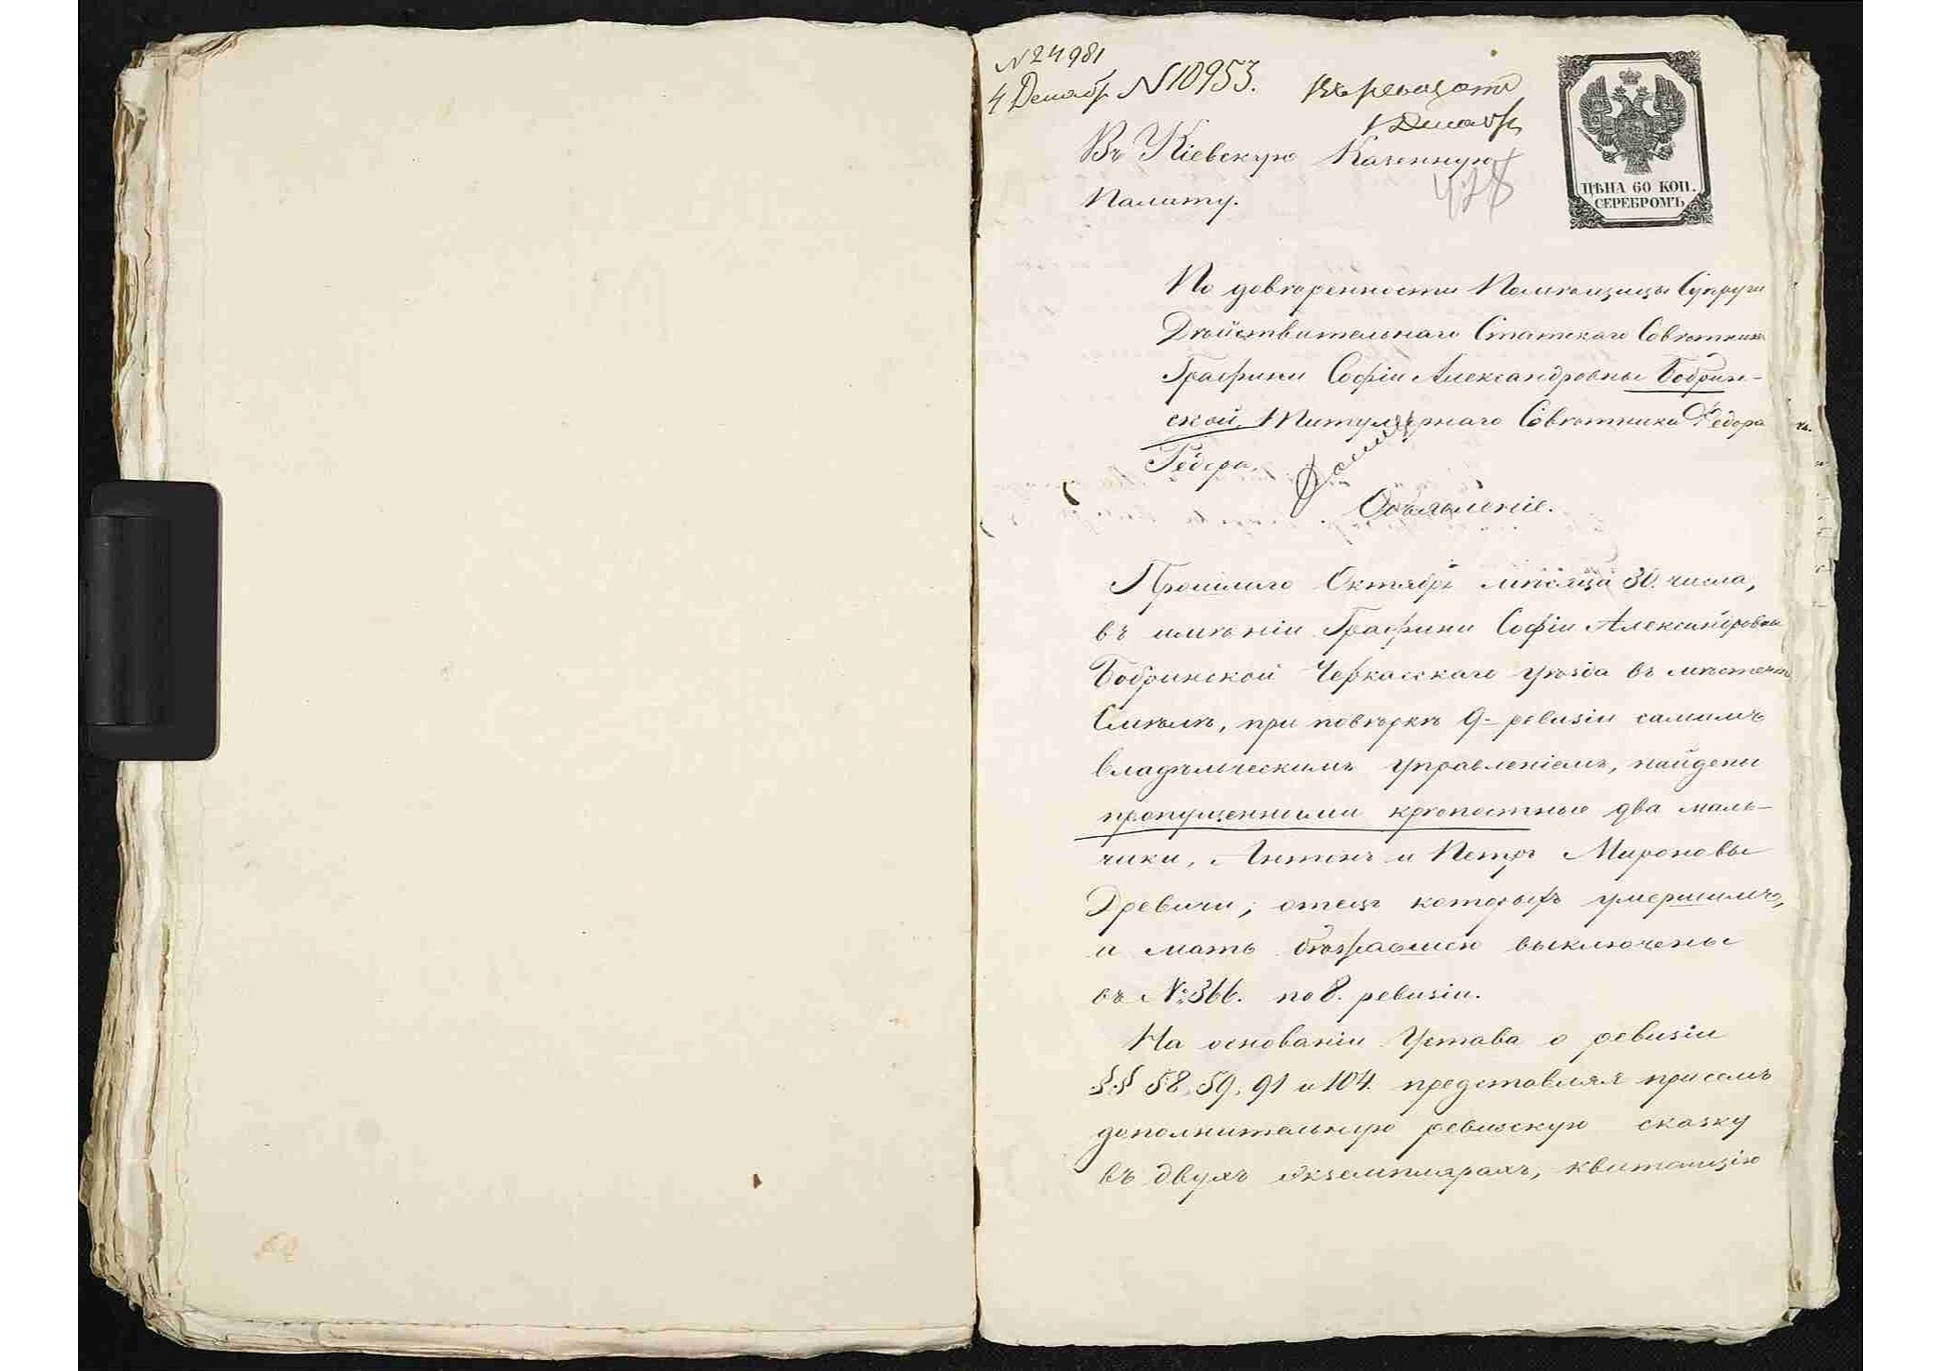 N 24981
4 Декабр N 10953.
Къ ревизіи
Декабр
Въ Кіевскую Казенную
Палату.
478
ЦѢНА 60 КОП.
СЕРЕБРОМЪ
По довѣренности Помѣщицы Супруги
Дѣйствительнаго Статскаго Совѣтника
Графини Софіи Александровны Бобрин-
ской, Титулярнаго Совѣтника Федора
Гедера.
Объявленіе.
Прошлаго Октября мѣсяца 30. числа,
въ имѣніи Графини Софіи Александровны
Бобринской Черкасскаго уѣзда въ мѣстечкѣ
Смѣлѣ, при повѣркѣ 9- ревизіи самимъ
владѣльческимъ управленіемъ, найдены
пропущенными крѣпостные два маль-
чики, Антонъ и Петръ Мироновы
Древичи; отецъ которыхъ умершимъ,
и мать бѣжавшею выключены
въ №: 366. по 8. ревизіи.
На основаніи Устава о ревизіи
§§ 58, 59, 91 и 104. представляя присемъ
дополнительную ревизскую сказку
въ двухъ экземплярахъ, квитанцію